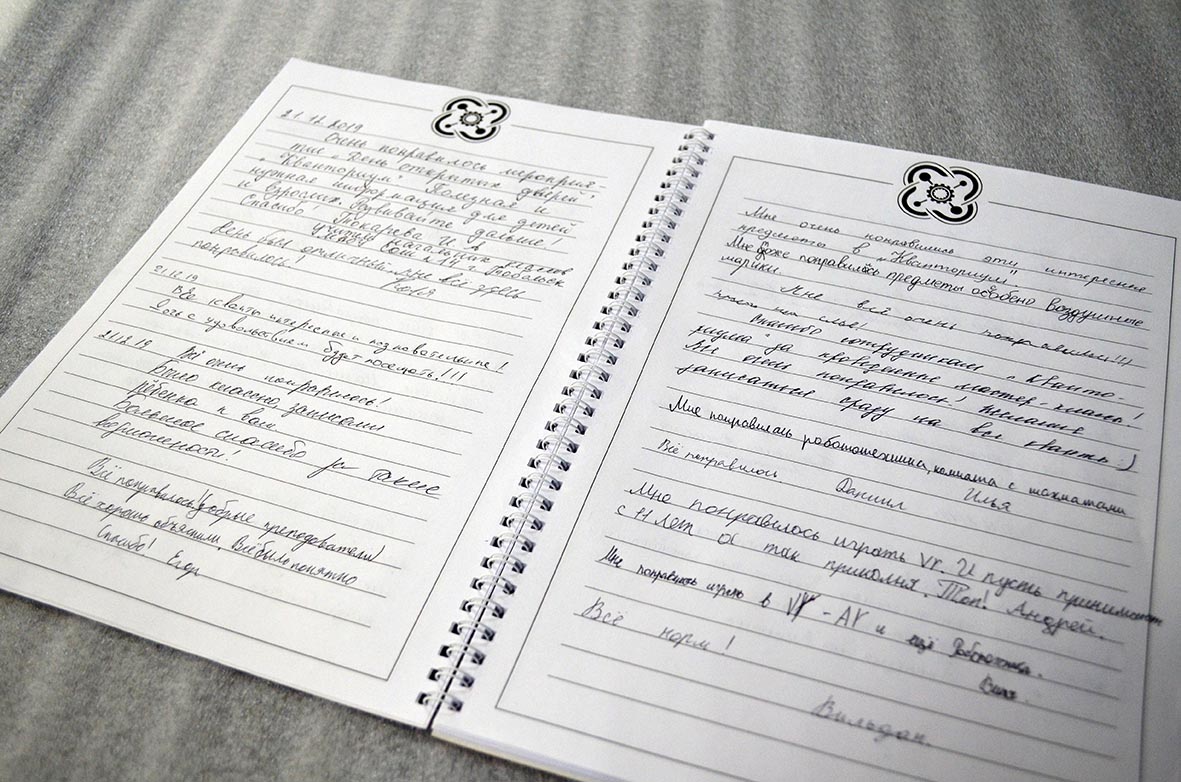 21.12.2019
Очень понравилось мероприя-
тие "День открытых дверей
"Кванториум". Полезная и
нужная информация для детей
и взрослых. Развивайте дальше!
Спасибо Токарева И.В.
Учитель начальных классов
Всё был отличный мне всё здесь
понравилось!
21.12.19
Всё кванто интересно и познавательно!
Хоть с удовольствием будет посещать!!!
21.12.19
Всё очень понравилось!
Было классно, записали
ребёнка к вам
Большое спасибо за такие
возможности!
Всё понравилось! Добрые преподователи!
Всё хорошо объяснили. Всё было понятно
Спасибо! Егор
Мне очень понравились эти интересные
предметы в "Кванториум".
Мне тоже понравились предметы особено воздушные
шарики.
Мне всё очень понравилось!!!)
просто нет слов!
Спасибо сотрудникам "Кванто-
риума" за проведение мастер-класса!
Им очень понравилось! Желание
записаться сразу на все кванты :)
Мне понравилась робототехника, комната с шахматами
Всё понравилось Даниил Илья
Мне понравилось играть Vr. И пусть принимают
с 11 лет а так прикольня. Топ! Андрей.
Мне понравилось играть в VR - AR и ещё Робототехника.
Всё норм!
Вильдан.